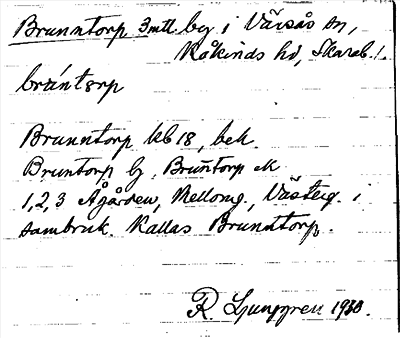 Brunntorp 3 mtl. by i Värsås sn,
Kåkinds hd, Skarab. l.
bräntorp
Brunntorp kb 18, bek.
Bruntorp by, Bruntorp
1, 2, 3 Ågården, Mellomg., Västerg. i
sambruk. Kallas Brunntorp.
R. Ljunggren 1930.